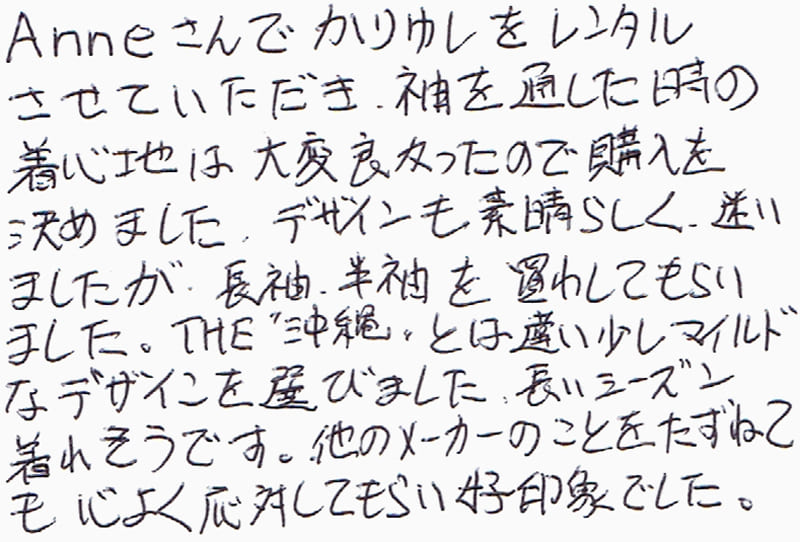 Anneさんでかりゆしをレンタル
させていただき、袖を通した時の
着心地は大変良かったので購入を
決めました。デザインも素晴らしく、迷い
ましたが、長袖、半袖を買わしてもらい
ました。THE“沖縄”とは違い少しマイルド
なデザインを選びました。長いシーズン
着れそうです。他のメーカーのことをたずねて
も心よく応対してもらい好印象でした。